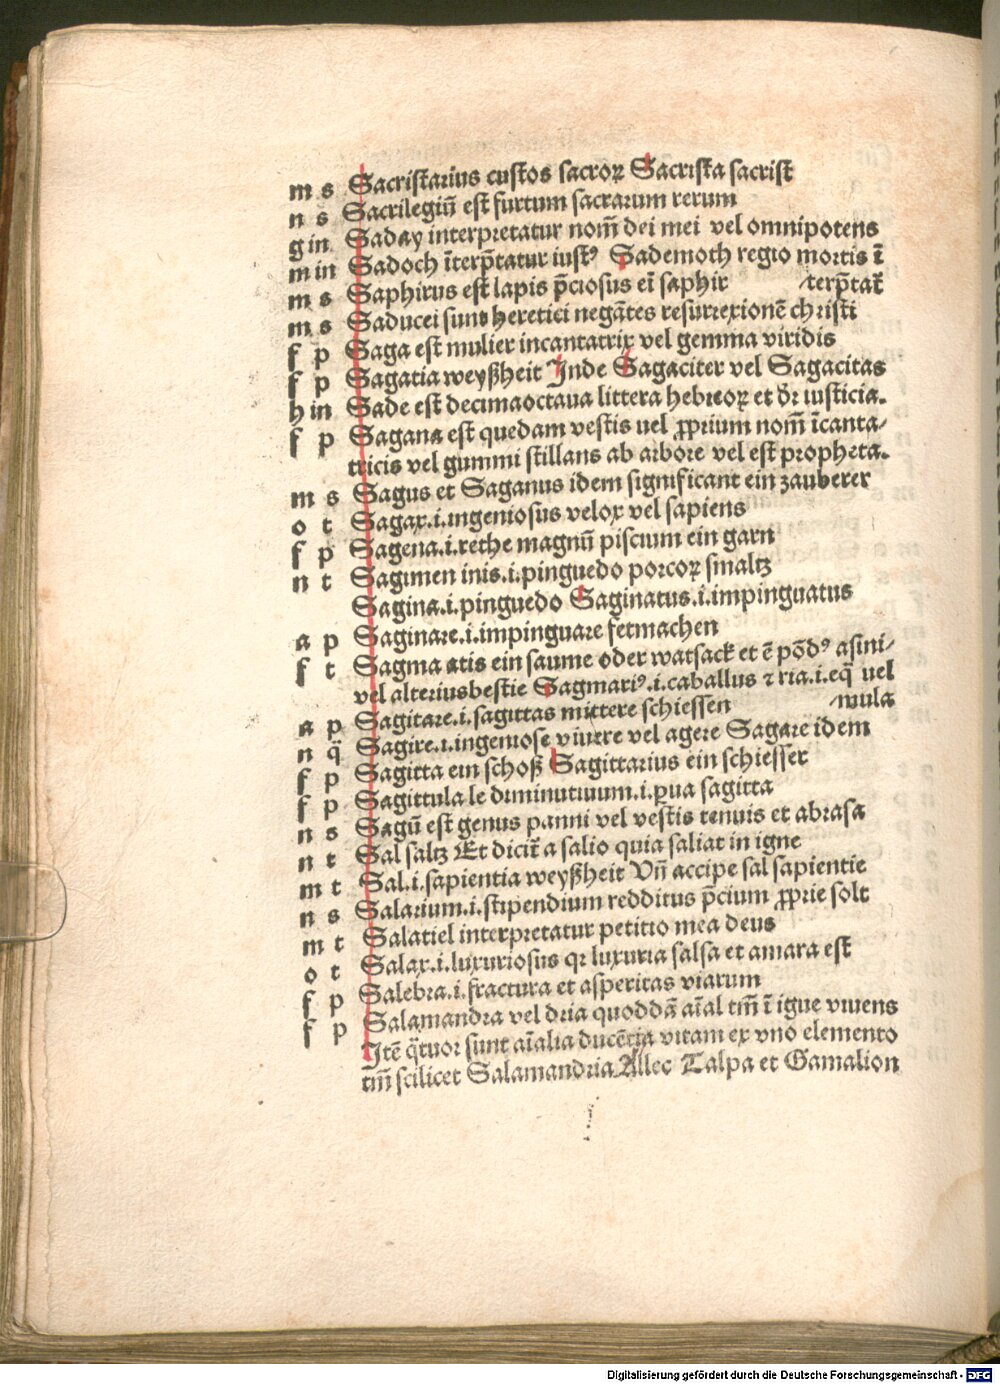 m s Sacristarius custos sacroꝝ Sacrista sacrist
n s Sacrilegiū est furtum sacrarum rerum
g in Saday interpretatur nom̄ dei mei vel omnipotens
m in Sadoch īterp̄tatur iustꝰ Sademoth regio mortis ī
m s Saphirus est lapis p̄ciosus eī saphir /terp̄tat̄
m s Saducei sunt heretici negātes resurrexionē christi
f p Saga est mulier incantatrix vel gemma viridis
f p Sagatia weyßheit Inde Sagaciter vel Sagacitas
h in Sade est decimaoctaua littera hebreoꝝ et dr̄ iusticia.
f p Sagana est quedam vestis uel ꝓprium nom̄ īcanta⸗
tricis vel gummi stillans ab arbore vel est propheta.
m s Sagus et Saganus idem significant ein zauberer
o t Sagax.i.ingeniosus velox vel sapiens
f p Sagena.i.rethe magnū piscium ein garn
n t Sagimen inis.i.pinguedo porcoꝝ smaltz
Sagina.i.pinguedo Saginatus.i.impinguatus
a p Saginare.i.impinguare fetmachen
f t Sagma atis ein saume oder watsack et ē pōdꝰ asini⸗
vel alteriusbestie Sagmariꝰ.i.caballus ꝛ ria.i.eq̄ uel
a p Sagitare.i.sagittas mittere schiessen /mula
n q̄ Sagire.i.ingeniose viuere vel agere Sagare idem
f p Sagitta ein schoß Sagittarius ein schiesser
f p Sagittula le diminutiuum.i.ꝑua sagitta
n s Sagū est genus panni vel vestis tenuis et abrasa
n t Sal saltz Et dicit̄ a salio quia saliat in igne
m t Sal.i.sapientia weyßheit Vn̄ accipe sal sapientie
n s Salarium.i.stipendium redditus p̄cium ꝓprie solt
m t Salatiel interpretatur petitio mea deus
o t Salax.i.luxuriosus qr luxuria salsa et amara est
f p Salebra.i.fractura et asperitas viarum
f p Salamandra vel dria quoddā aīal tm̄ ī igne viuens
Itē q̄tuor sunt aīalia ducētia vitam ex vno elemento
tm̄ scilicet Salamandria Allec Talpa et Gamalion
Digitalisierung gefördert durch die Deutsche Forschungsgemeinschaft - DFG